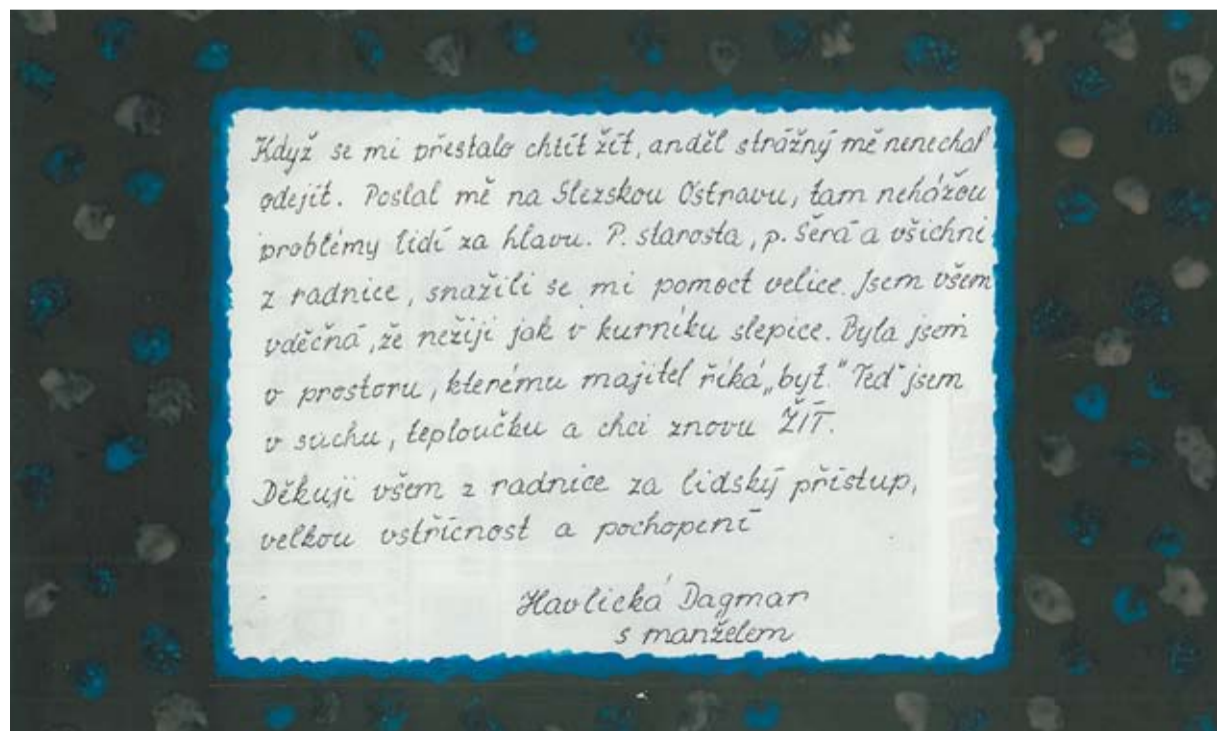 Když se mi přestalo chtít žít, anděl strážný mě nenechal
odejít. Poslal mě na Slezskou Ostravu, tam neházou
problémy lidí za hlavu. P. starosta, p. Šerá a všichni
z radnice, snažili se mi pomoct velice. Jsem všem
vděčná, že nežiji jak v kurníku slepice. Byla jsem
v prostoru, kterému majitel říká „byt." Teď jsem
v suchu, teploučku a chci znovu ŽÍT.
Děkuji všem z radnice za lidský přístup,
velkou vstřícnost a pochopení
Havlická Dagmar
s manželem